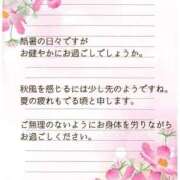 酷暑の日々ですが
お健やかにお過ごしでしょうか。
秋風を感じるには少し先のようですね。
夏の疲れもでてる頃と申します。
ご無理のないようにお身体を労りながら
お過ごしください。